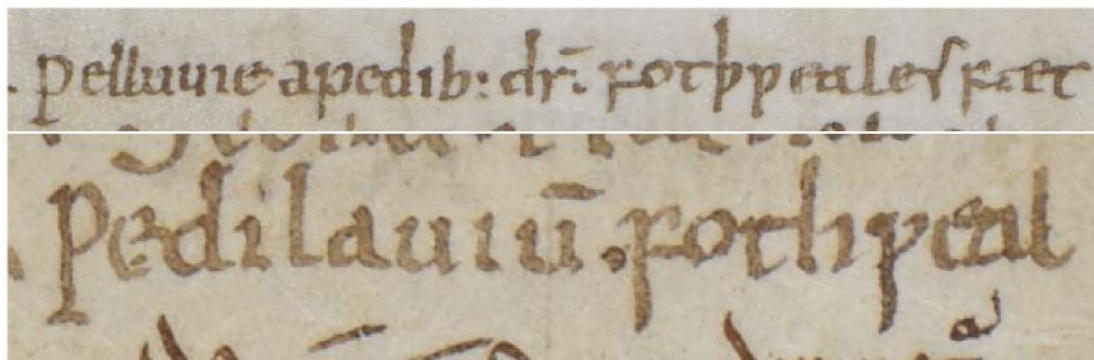 Pelluuie apedib: dr̄. fotþƿealeſ fæt
Pedilauiū. fothƿeal